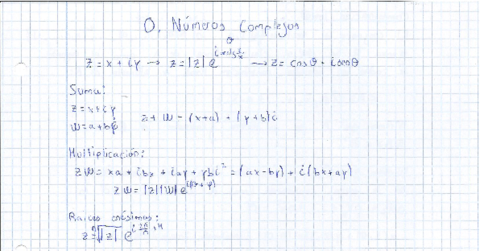 0. Números Complejos
z = x + iy → z = |z| e → z = cosθ + i senθ
Suma:
z = x + iy
w = a + bi
z + w = (x+a) + (y+b)i
Multiplicación:
z w = xa + ibx + iay + ybi² = (ax - by) + i(bx + ay)
z w = |z||w| e
Raíces enésimas:
z = ⁿ√|z| e